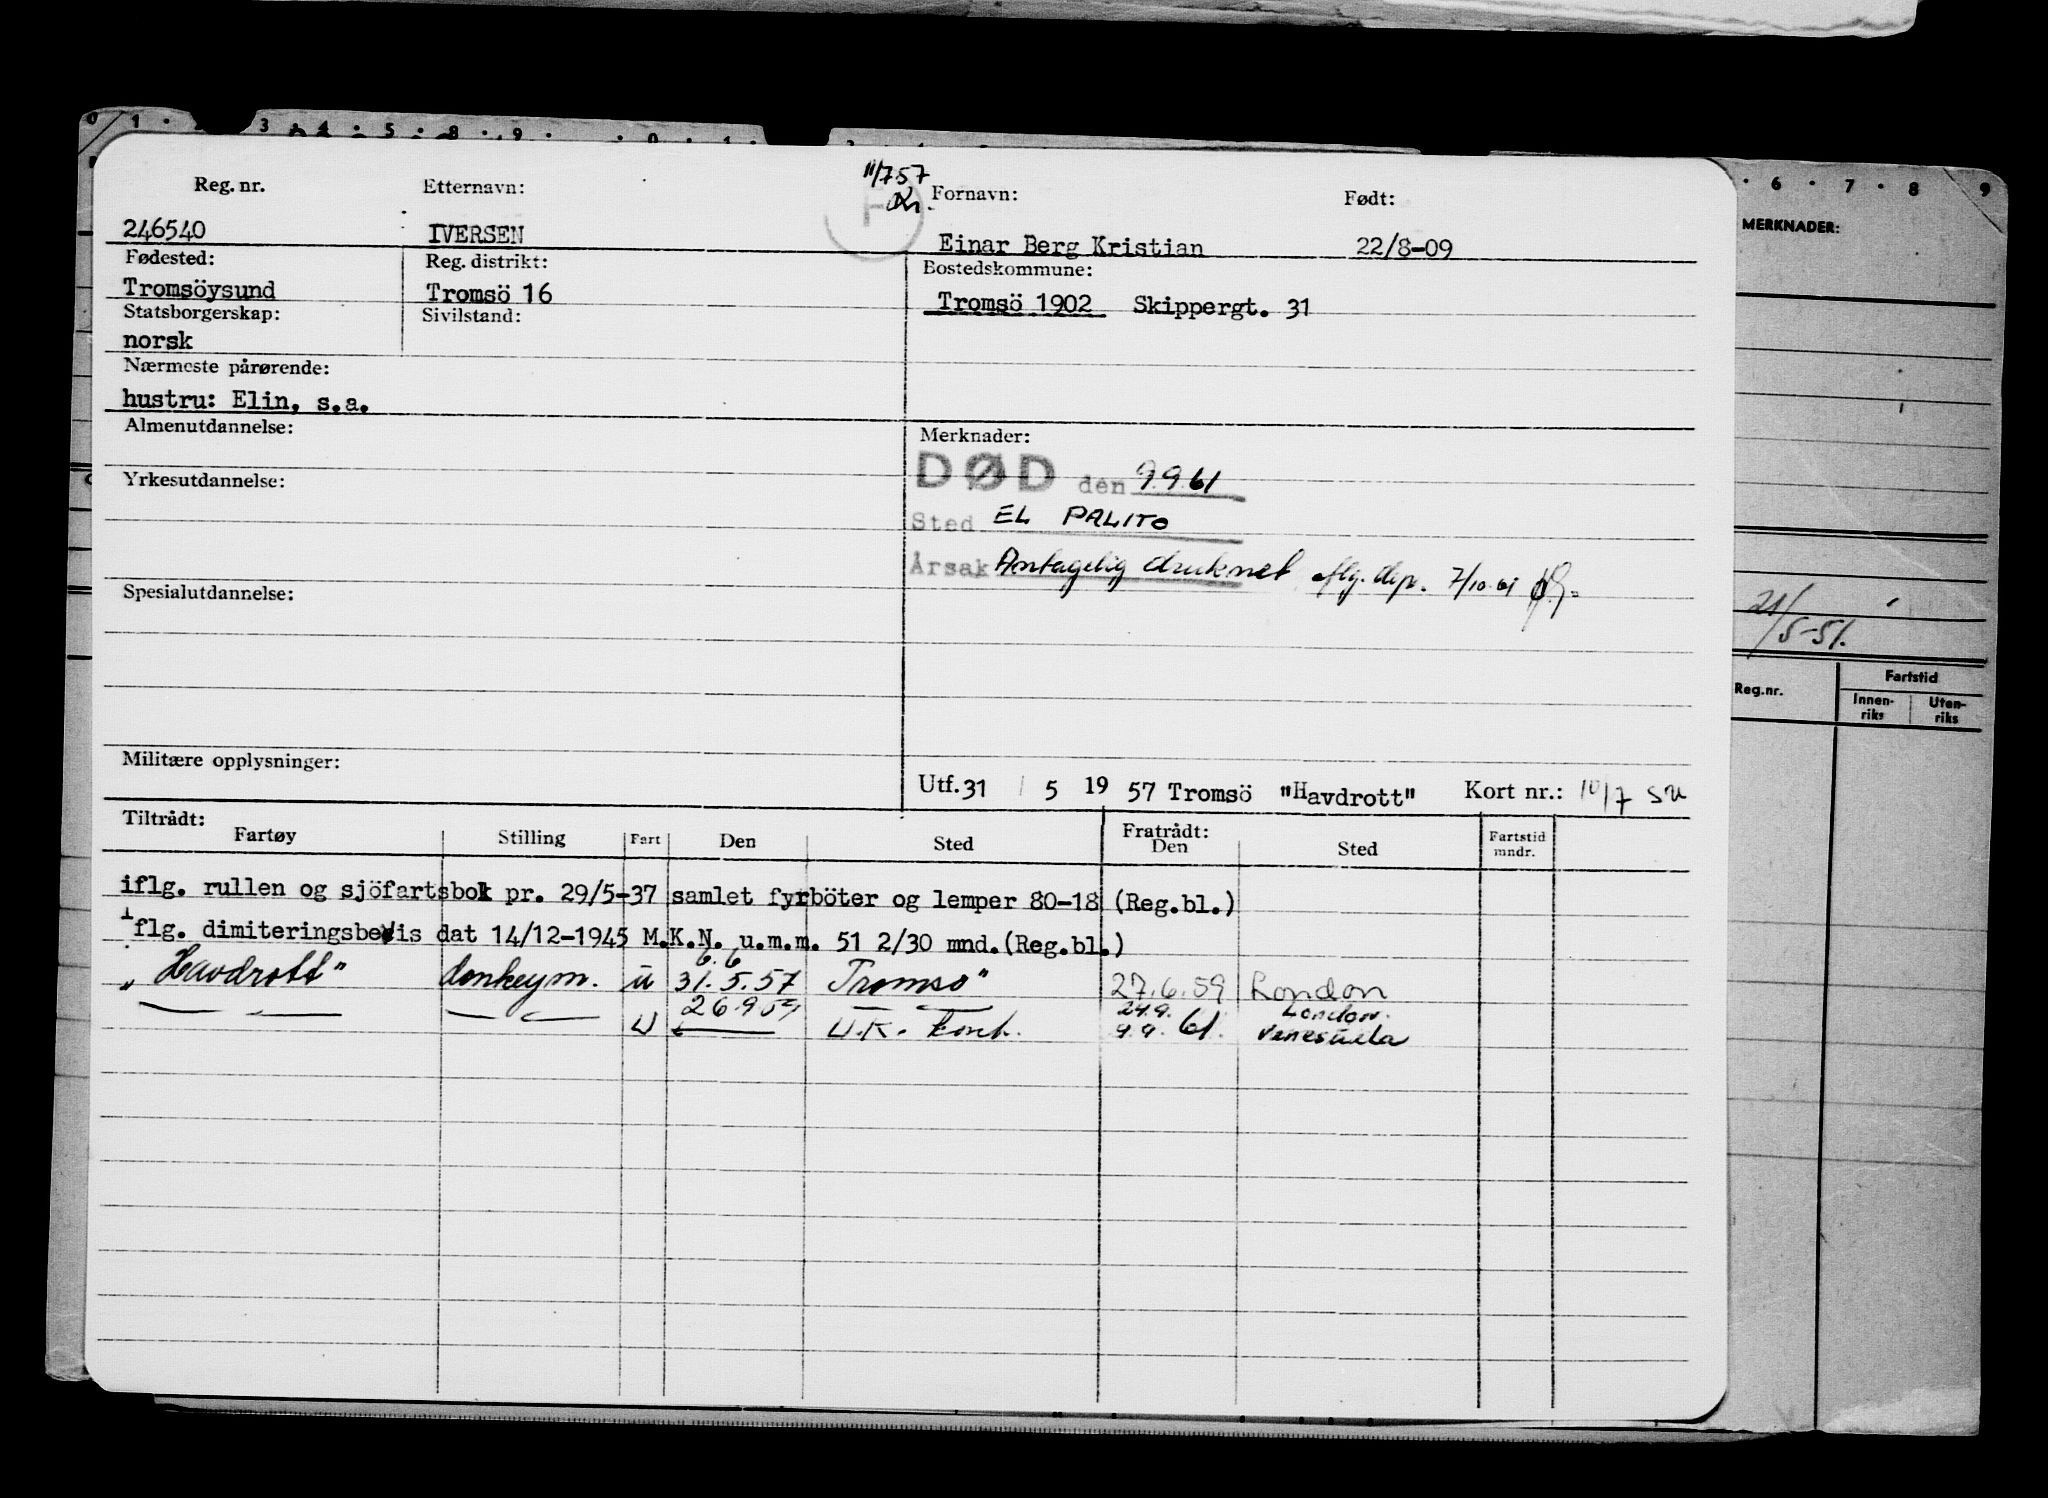 0 1 · 3 · 4 · 5 · 8 · 9 · · 0 · 1 ·
· 6 · 7 · 8 9
MERKNADER:
11/7 57
Reg. nr. Etternavn: Fornavn: Født:
246540 IVERSEN Einar Berg Kristian 22/8-09
Fødested: Reg. distrikt: Bostedskommune:
Tromsöysund Tromsö 16 Tromsö 1902 Skippergt. 31
Statsborgerskap: Sivilstand:
norsk
Nærmeste pårørende:
hustru: Elin, s.a.
Almenutdannelse: Merknader:
DØD den 9.9.61
Yrkesutdannelse:
Sted EL PALITO
Årsak Antagelig druknet iflg. dep. 7/10-61
Spesialutdannelse:
21/5-51.
Reg.nr. Fartstid
Innen-riks Uten-riks
Militære opplysninger:
Utf. 31 / 5 19 57 Tromsö "Havdrott" Kort nr.: 10/7 SU
Tiltrådt: Fratrådt:
Fartøy Stilling Fart Den Sted Den Sted Fartstid mndr.
iflg. rullen og sjöfartsbok pr. 29/5-37 samlet fyrböter og lemper 80-18 (Reg.bl.)
iflg. dimiteringsbevis dat 14/12-1945 M.K.N. u.m.m. 51 2/30 mnd.(Reg.bl.)
6.6
"Havdrott" donkeym. u 31.5.57 Tromsø" 27.6.59 London
26.9.59 24.9. London.
U U.K. kont. 9.9. 61. Venesuela